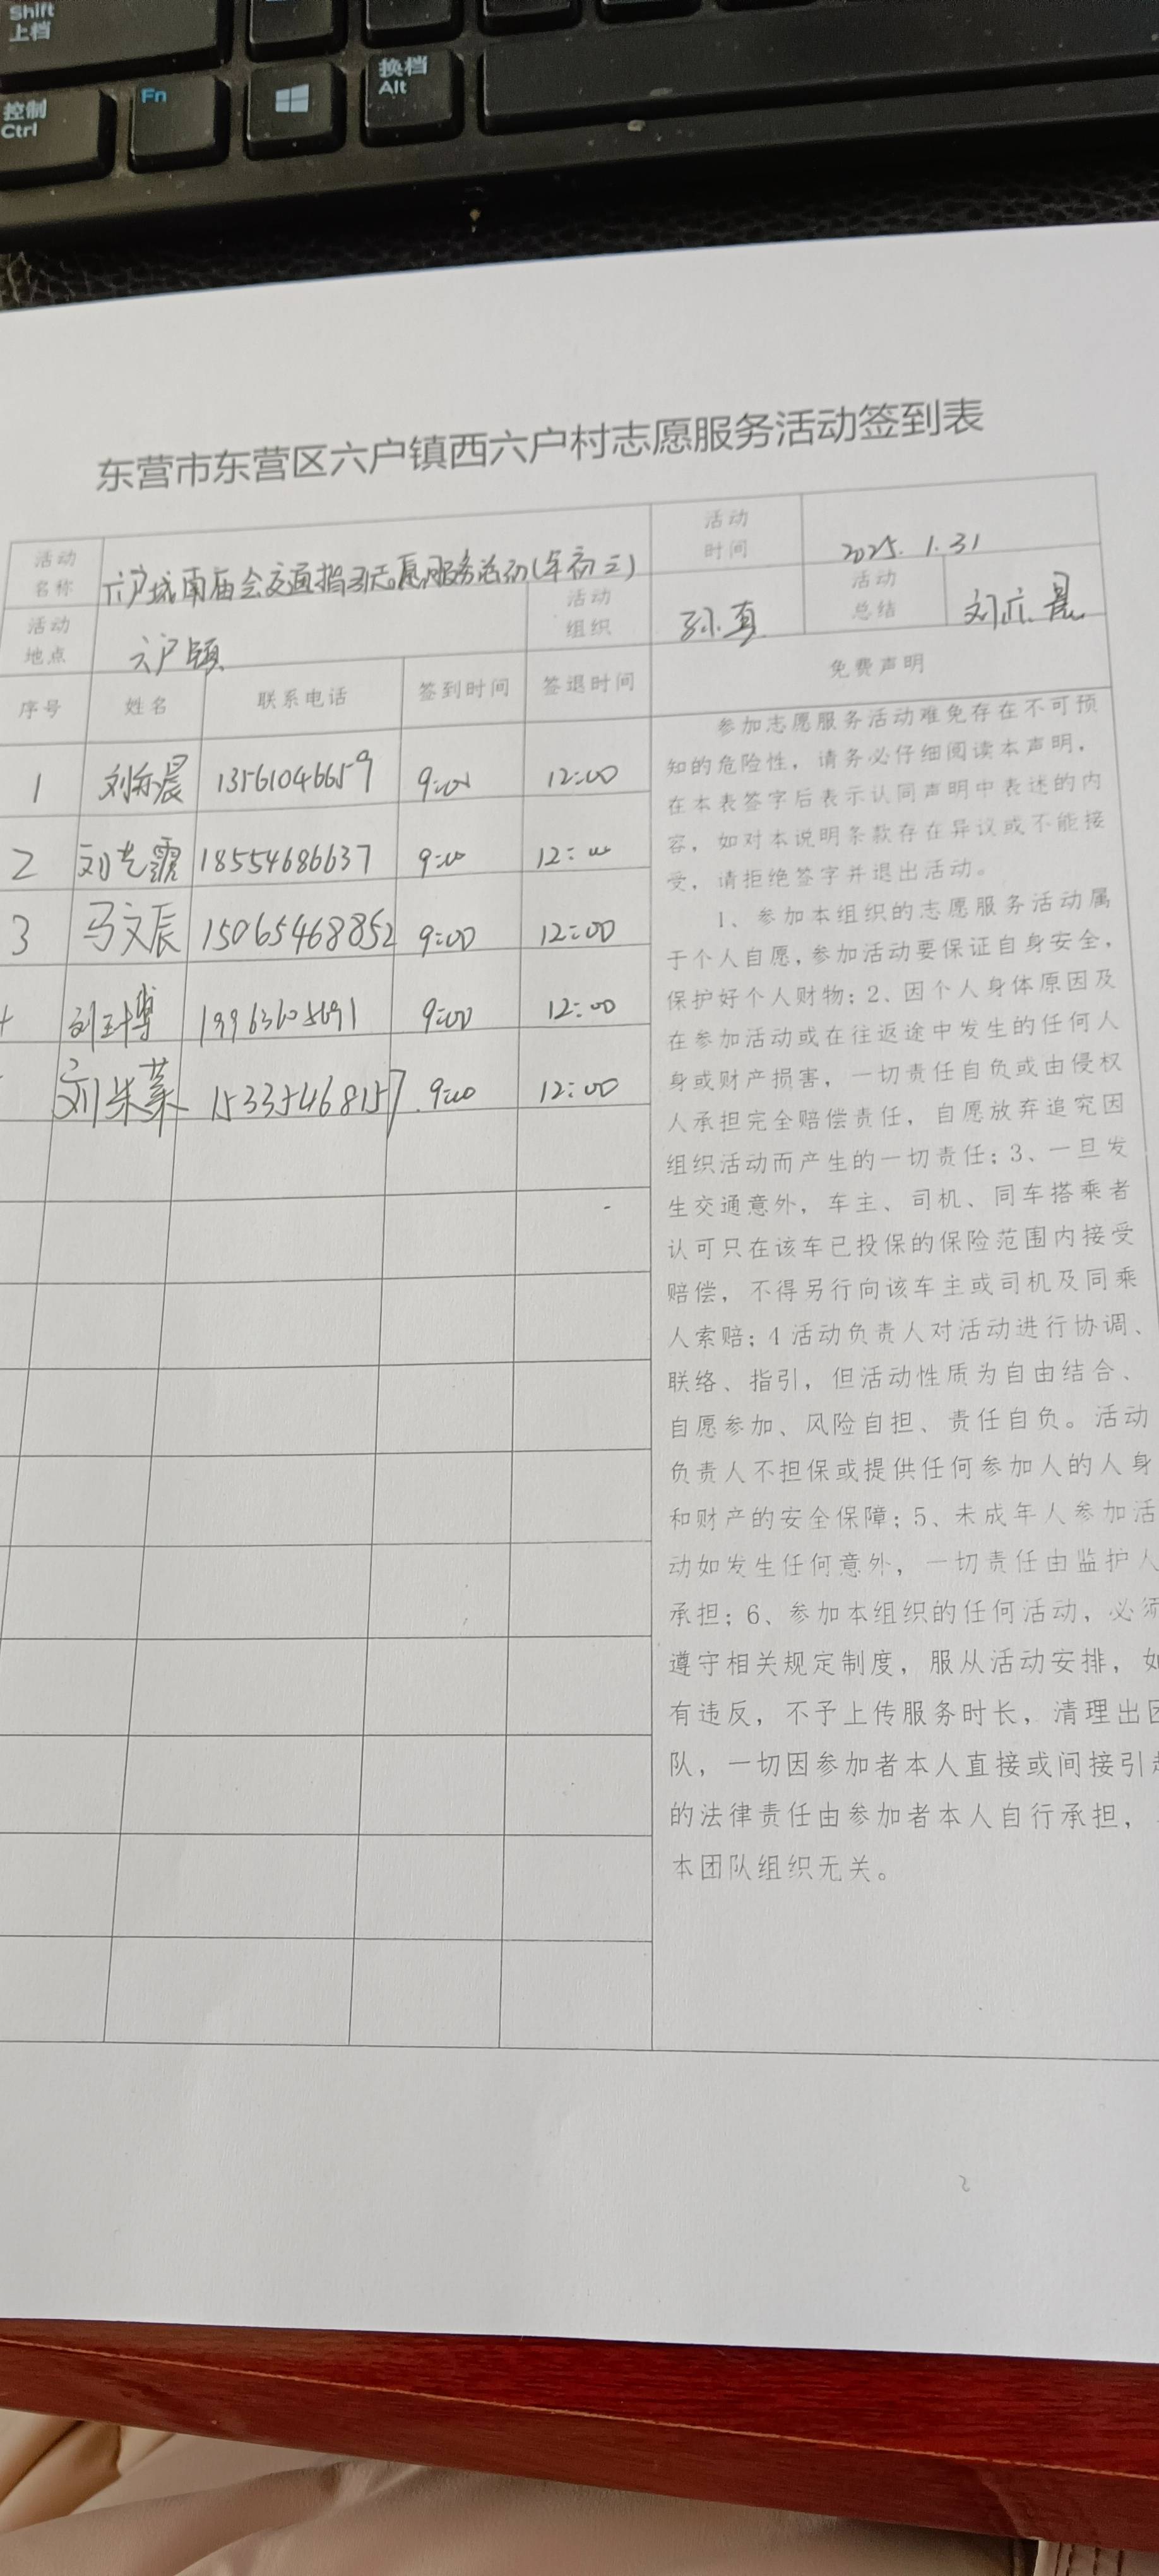 Shift
上档
控制
Ctrl
Fn
换档
Alt
东营市东营区六户镇西六户村志愿服务活动签到表
活动名称 六户城南庙会交通指引志愿服务活动(年初三) 活动时间 2025.1.31
活动地点 六户镇 活动组织 孙真 活动总结 刘亦晨
序号 姓名 联系电话 签到时间 签退时间 免费声明
1 刘亦晨 13561046659 9:00 12:00
2 刘志霞 18554686637 9:00 12:00
3 马文辰 15065468852 9:00 12:00
刘玉博 19963605691 9:00 12:00
刘朱菜 15335468157 9:00 12:00
参加志愿服务活动难免存在不可预
知的危险性，请务必仔细阅读本声明，
在本表签字后表示认同声明中表述的内
容，如对本说明条款存在异议或不能接
受，请拒绝签字并退出活动。
1、参加本组织的志愿服务活动属
于个人自愿，参加活动要保证自身安全，
保护好个人财物；2、因个人身体原因及
在参加活动或在往返途中发生的任何人
身或财产损害，一切责任自负或由侵权
人承担完全赔偿责任，自愿放弃追究因
组织活动而产生的一切责任；3、一旦发
生交通意外，车主、司机、同车搭乘者
认可只在该车已投保的保险范围内接受
赔偿，不得另行向该车主或司机及同乘
人索赔；4活动负责人对活动进行协调、
联络、指引，但活动性质为自由结合、
自愿参加、风险自担、责任自负。活动
负责人不担保或提供任何参加人的人身
和财产的安全保障；5、未成年人参加活
动如发生任何意外，一切责任由监护人
承担；6、参加本组织的任何活动，必须
遵守相关规定制度，服从活动安排，如
有违反，不予上传服务时长，清理出团
队，一切因参加者本人直接或间接引起
的法律责任由参加者本人自行承担，
本团队组织无关。